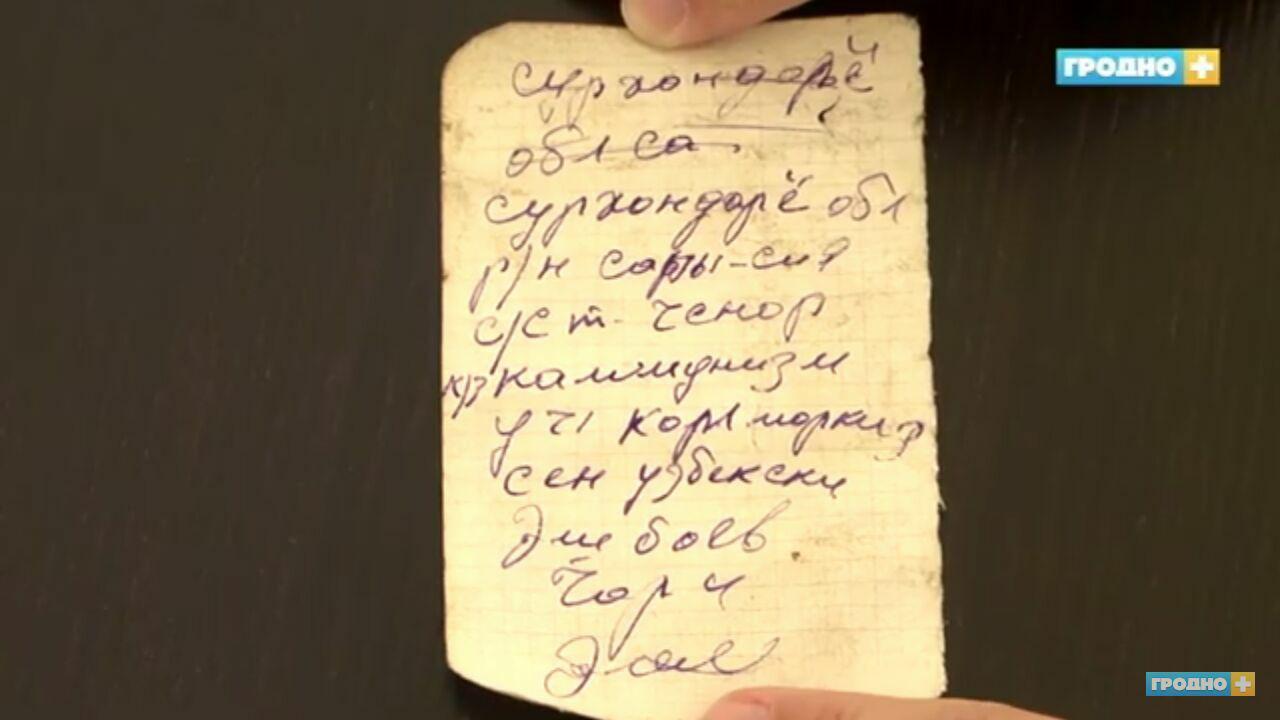 ГРОДНО +
сурхондарё
обл са
сурхондарё обл
р/н сары-сия
с/ст. ченор
к/з каммунизм
уч карл маркиз
сен узбекски
Эшбоев
Чори
ГРОДНО +